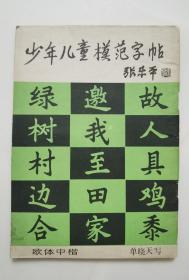 少年儿童模范字帖
张乐平
故人具鸡黍
邀我至田家
绿树村边合
欧体中楷
单晓天写